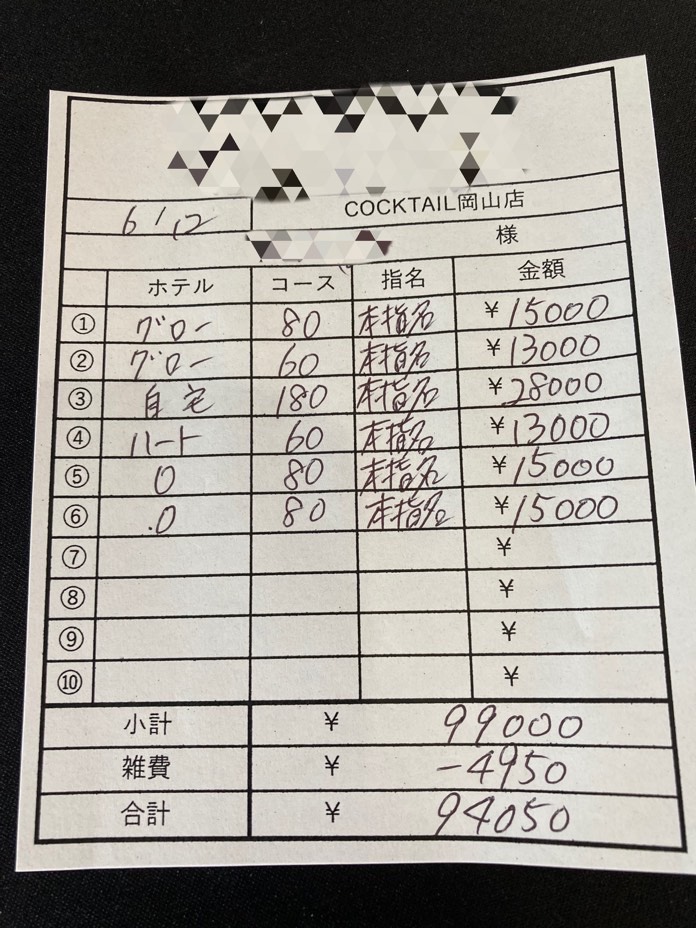 COCKTAIL岡山店
6/12
様
ホテル コース 指名 金額
① グロー 80 本指名 ¥15000
② グロー 60 本指名 ¥13000
③ 自宅 180 本指名 ¥28000
④ ハート 60 本指名 ¥13000
⑤ O 80 本指名 ¥15000
⑥ .O 80 本指名 ¥15000
⑦ ¥
⑧ ¥
⑨ ¥
⑩ ¥
小計 ¥ 99000
雑費 ¥ -4950
合計 ¥ 94050